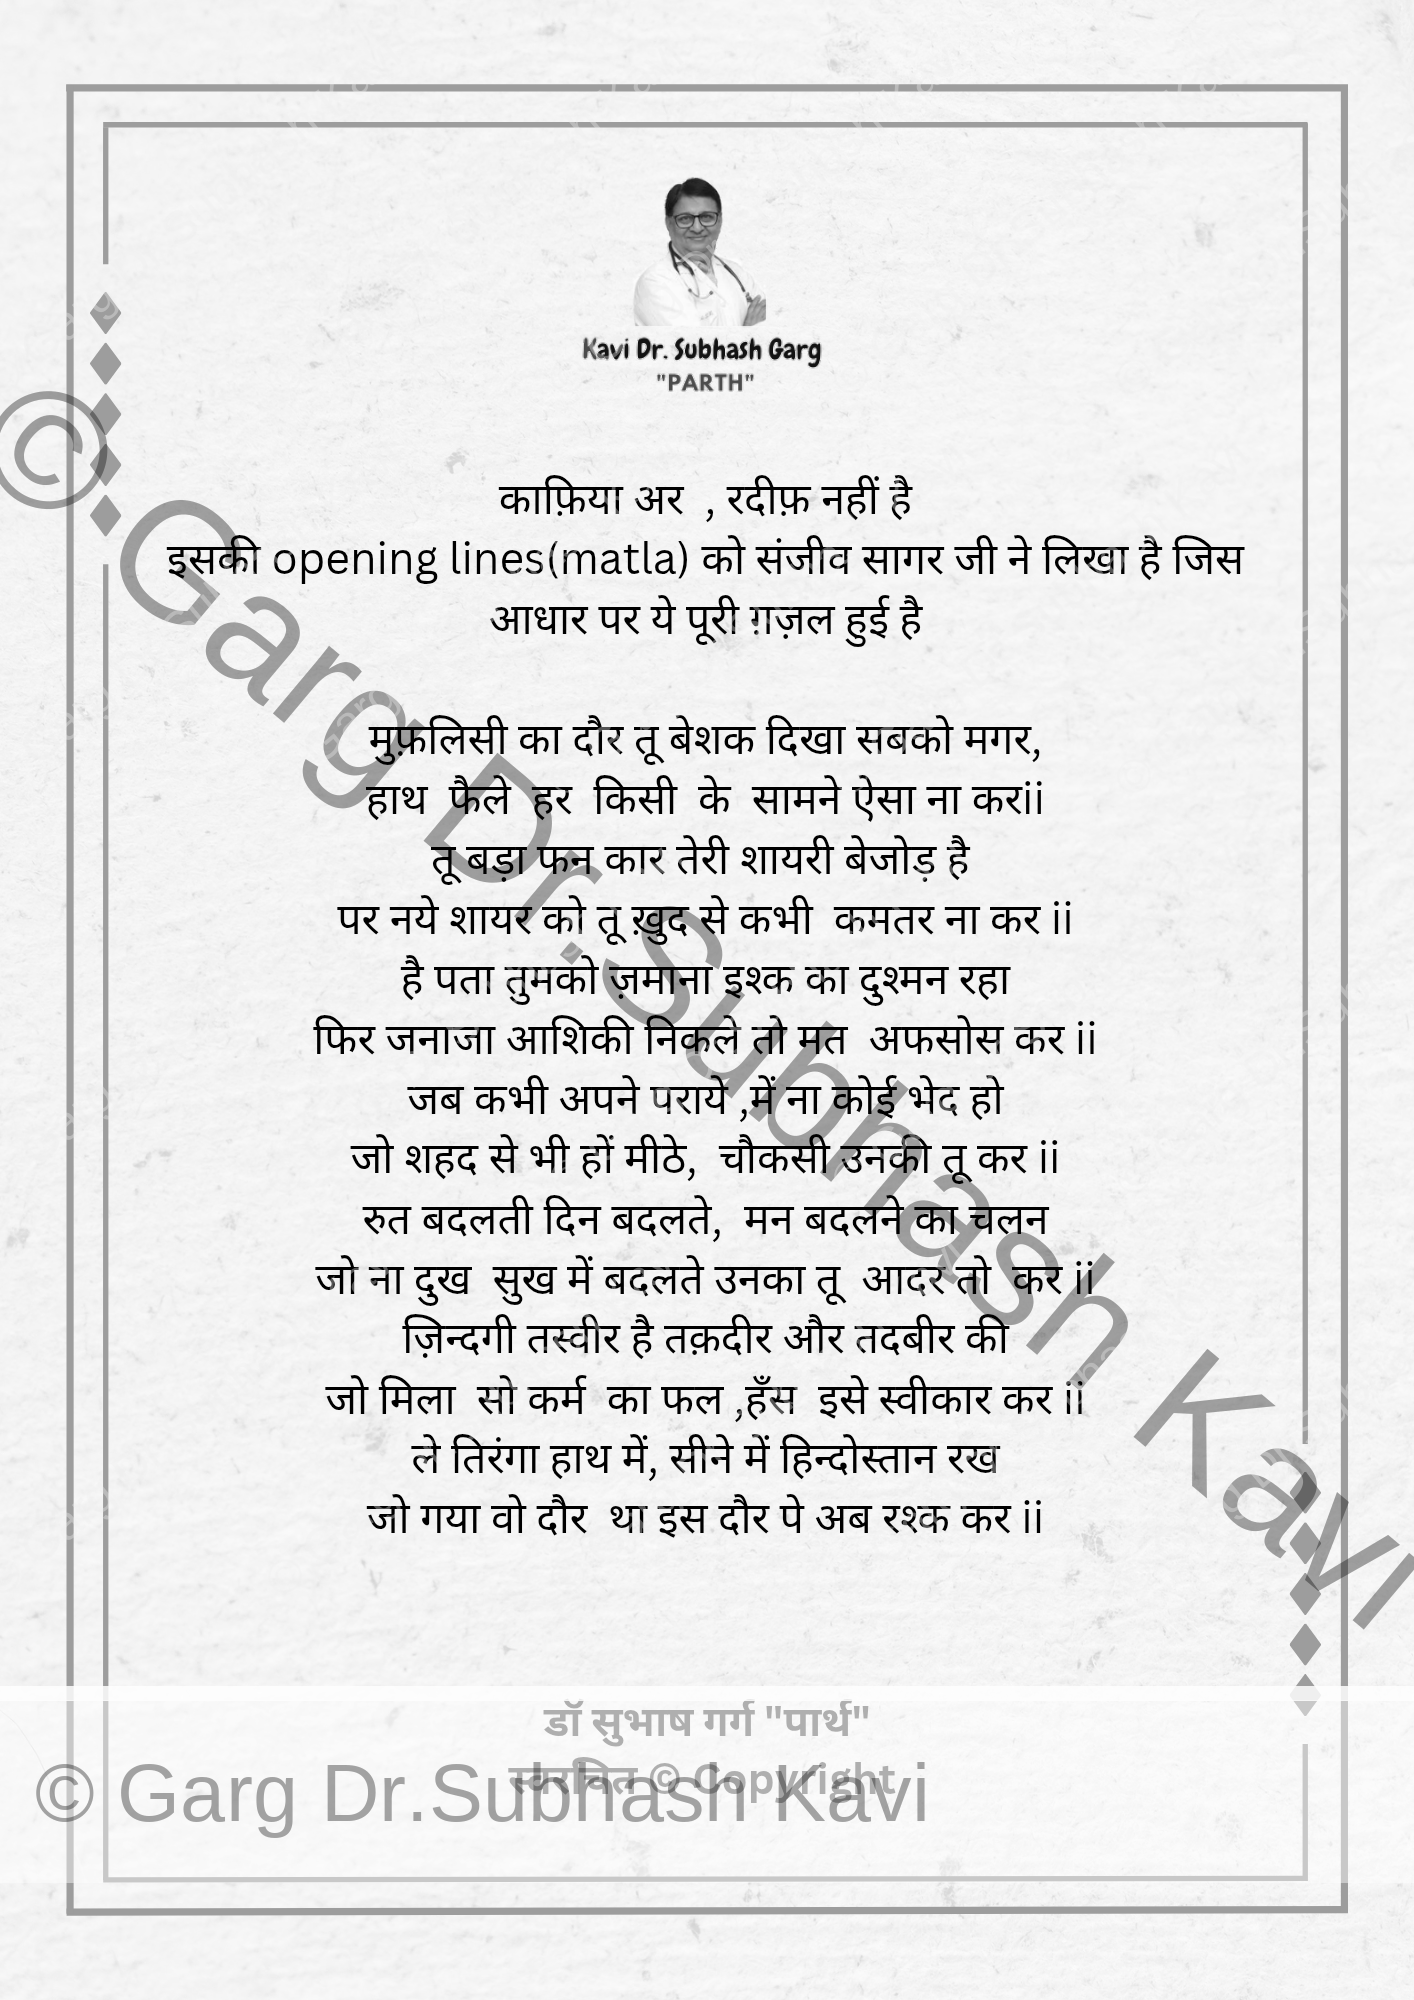 Kavi Dr. Subhash Garg
"PARTH"
काफ़िया अर , रदीफ़ नहीं है
इसकी opening lines(matla) को संजीव सागर जी ने लिखा है जिस
आधार पर ये पूरी ग़ज़ल हुई है
मुफ़लिसी का दौर तू बेशक दिखा सबको मगर,
हाथ फैले हर किसी के सामने ऐसा ना करii
तू बड़ा फन कार तेरी शायरी बेजोड़ है
पर नये शायर को तू ख़ुद से कभी कमतर ना कर ii
है पता तुमको ज़माना इश्क का दुश्मन रहा
फिर जनाजा आशिकी निकले तो मत अफसोस कर ii
जब कभी अपने पराये ,में ना कोई भेद हो
जो शहद से भी हों मीठे, चौकसी उनकी तू कर ii
रुत बदलती दिन बदलते, मन बदलने का चलन
जो ना दुख सुख में बदलते उनका तू आदर तो कर ii
ज़िन्दगी तस्वीर है तक़दीर और तदबीर की
जो मिला सो कर्म का फल ,हँस इसे स्वीकार कर ii
ले तिरंगा हाथ में, सीने में हिन्दोस्तान रख
जो गया वो दौर था इस दौर पे अब रश्क कर ii
© Garg Dr.Subhash Kavi
डॉ सुभाष गर्ग "पार्थ"
स्वरचित © Copyright
© Garg Dr.Subhash Kavi